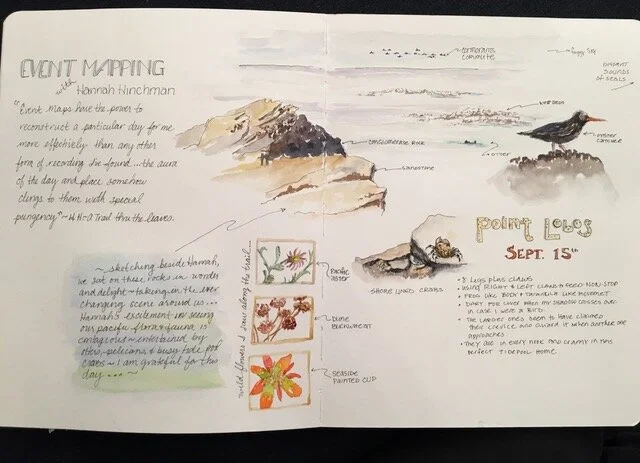 EVENT MAPPING
with Hannah Hinchman
"Event maps have the power to
reconstruct a particular day for me
more effectively than any other
form of recording I've found...the aura
of the day and place somehow
clings to them with special
pungency" ~ H.H - A Trail thru the leaves.
~ sketching beside Hannah,
we sat on this, rocks in wonder
and delight ~ taking in the ever
changing scene around us...
Hannah's excitement in seeing
our pacific flora & fauna is
contagious ~ entertained by
otters, pelicans & busy tide pool
crabs ~ I am grateful for this
day... ~
wild flowers I saw along the trail...
PACIFIC
ASTER
DUNE
BUCKWHEAT
SEASIDE
PAINTED CUP
CORMORANTS
COMMUTE
foggy sky
DISTANT
SOUNDS
OF SEALS
KELP BEDS
OTTER
OYSTER
CATCHER
CONGLOMERATE ROCK
SANDSTONE
POINT LOBOS
SEPT. 15th
SHORE LINED CRABS
• 8 LEGS PLUS CLAWS
• USING RIGHT & LEFT CLAWS to FEED NON-STOP
• FROG LIKE BODY & TARANTULA LIKE MOVEMENT
• DART FOR COVER WHEN MY SHADOW CROSSES OVER
IN CASE I WERE A BIRD.
• THE LARGER ONES SEEM TO HAVE CLAIMED
THEIR CREVICE AND GUARD IT WHEN ANOTHER ONE
APPROACHES
• THEY ARE IN EVERY NOOK AND CRANNY IN THIS
PERFECT TIDEPOOL HOME.